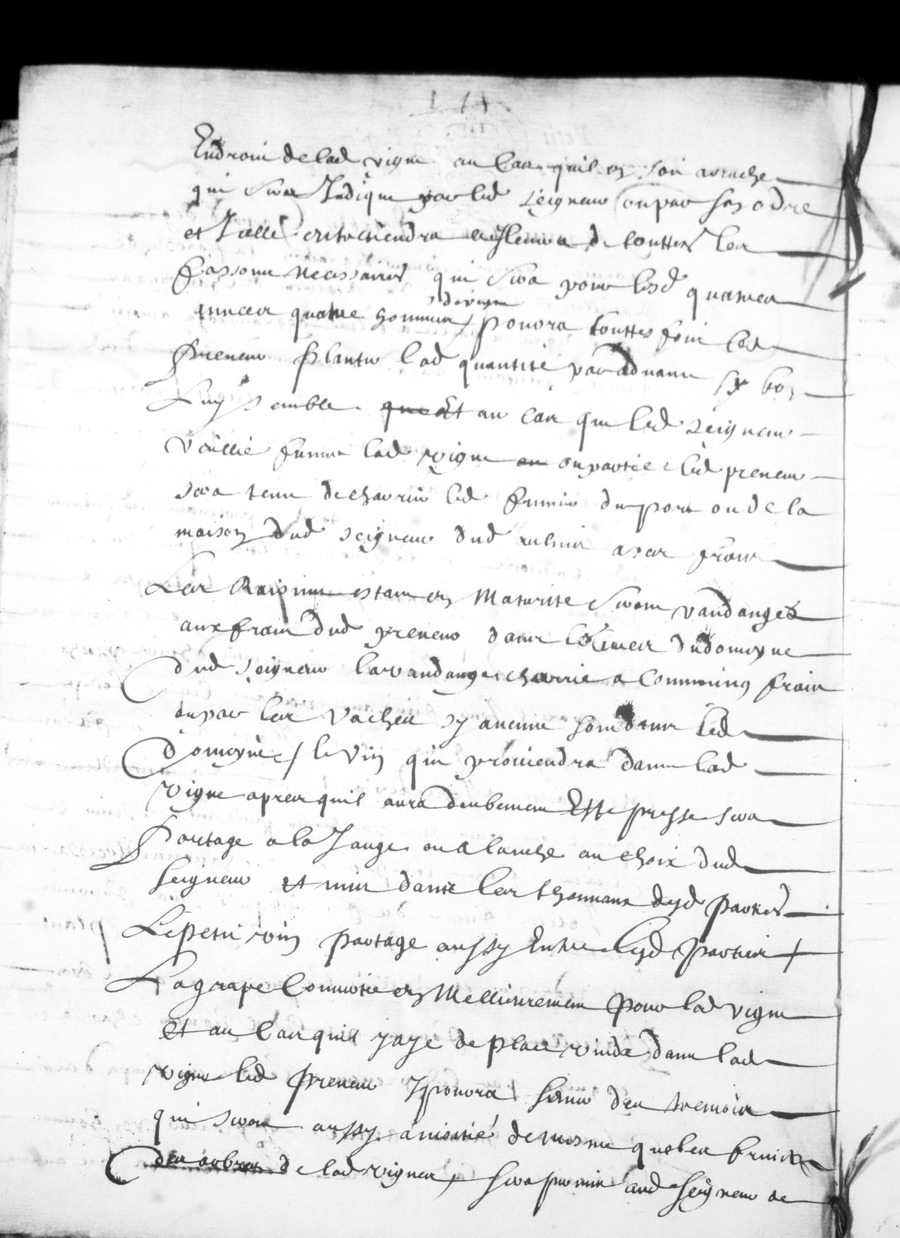 Endroit de lad vigne au cas quil en soit arrache
qui sera Indique par led Seigneur ou par son odre
et Icelle entretiendra de touttes les
fassons necessaires qui sera pour lesd quatres
annees quatre hommes de vigne poura touttes fois led
preneur planter lad quantité par advance sy bon
Luy semble Et au cas que led Seigneur
Veullie fumer lad vigne ou partie led preneur
sera tenu de charrier led fumier du port ou de la
maison dud seigneur dud a ses frais
Les Raisins estant en Maturité seront vandangés
aux frais dud preneur dans du domeyne
dud Seigneur la vandange charriée a Commung frais
ou par les vaches sy aucune sont dans led
domeyne / le vin qui proviendra dans lad
vigne apres quil aura deubement Este presse sera
Partage a la Jauge ou a lanche au choix dud
Seigneur et mis dans les thonneaux desd parties
Le petit vin partage aussy Entre lesd parties
La grape Convertie en Mellieurement pour lad vigne
Et au cas quil y aye de place vuide dans lad
vigne led Preneur y poura semer des tremois
qui seront aussy a moitié de mesme que les fruicts
des arbres de lad vigne, sera permis aud Seigneur de